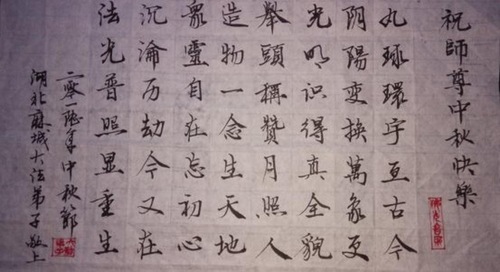 祝師尊中秋快樂
丸球環宇亙古今
阴陽变换萬象更
光明識得真全貌
舉頭稱贊月照人
造物一念生天地
眾靈自在忘初心
沉淪历劫今又在
法光普照显重生
二零一年中秋節
湖北麻城大法弟子敬上